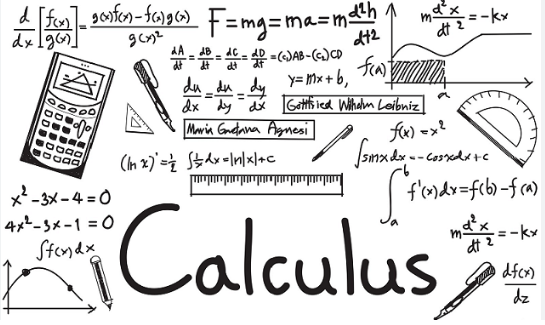 d/dx [f(x)/g(x)] = g(x)f(x) - f(x)g(x) / g(x)²
F = mg = ma = m d²h/dt²
m d²x/dt² = -kx
dA/dt = dB/dt = dC/dt = dD/dt = (c)AB-(c)CD
f(a)
a
du/dx = du/dy = dy/dx
y = mx + b,
Gottfied Wilhelm Leibniz
Maria Gaetana Agnesi
f(x) = x²
(ln x)' = 1/2
∫1/x dx = ln|x| + c
∫sinx dx = -cosxdx + c
∫ₐᵇ f'(x)dx = f(b) - f(a)
x² - 3x - 4 = 0
4x² - 3x - 1 = 0
∫f(x)dx
Calculus
m d²x/dt² = -kx
df(x)/dz